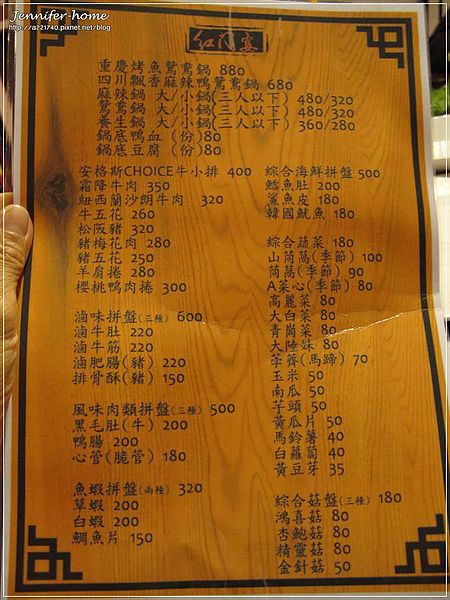 Jennifer-home
http://a221740.pixnet.net/blog
紅門宴
重慶烤魚鴛鴦鍋 880
四川飄香麻辣鴨鴛鴦鍋 680
麻辣鍋 大/小鍋(三人以下) 480/320
鴛鴦鍋 大/小鍋(三人以下) 480/320
養生鍋 大/小鍋(三人以下) 360/280
鍋底鴨血(份)80
鍋底豆腐(份)80
安格斯CHOICE牛小排 400
霜降牛肉 350
紐西蘭沙朗牛肉 320
牛五花 260
松阪豬 320
豬梅花肉 280
豬五花 250
羊肩捲 280
櫻桃鴨肉捲 300
滷味拼盤(三種) 600
滷牛肚 220
滷牛筋 220
滷肥腸(豬) 220
排骨酥(豬) 150
風味肉類拼盤(三種) 500
黑毛肚(牛) 200
鴨腸 200
心管(脆管) 180
魚蝦拼盤(兩種) 320
草蝦 200
白蝦 200
鯛魚片 150
綜合海鮮拼盤 500
鱈魚肚 200
鯊魚皮 180
韓國魷魚 180
綜合蔬菜 180
山茼萵(季節) 100
茼萵(季節) 90
A菜心(季節) 80
高麗菜 80
大白菜 80
青崗菜 80
大陸妹 80
荸薺(馬蹄) 70
玉米 50
南瓜 50
芋頭 50
黃瓜片 50
馬鈴薯 40
白蘿蔔 40
黃豆芽 35
綜合菇盤(三種) 180
鴻喜菇 80
杏鮑菇 80
精靈菇 80
金針菇 50